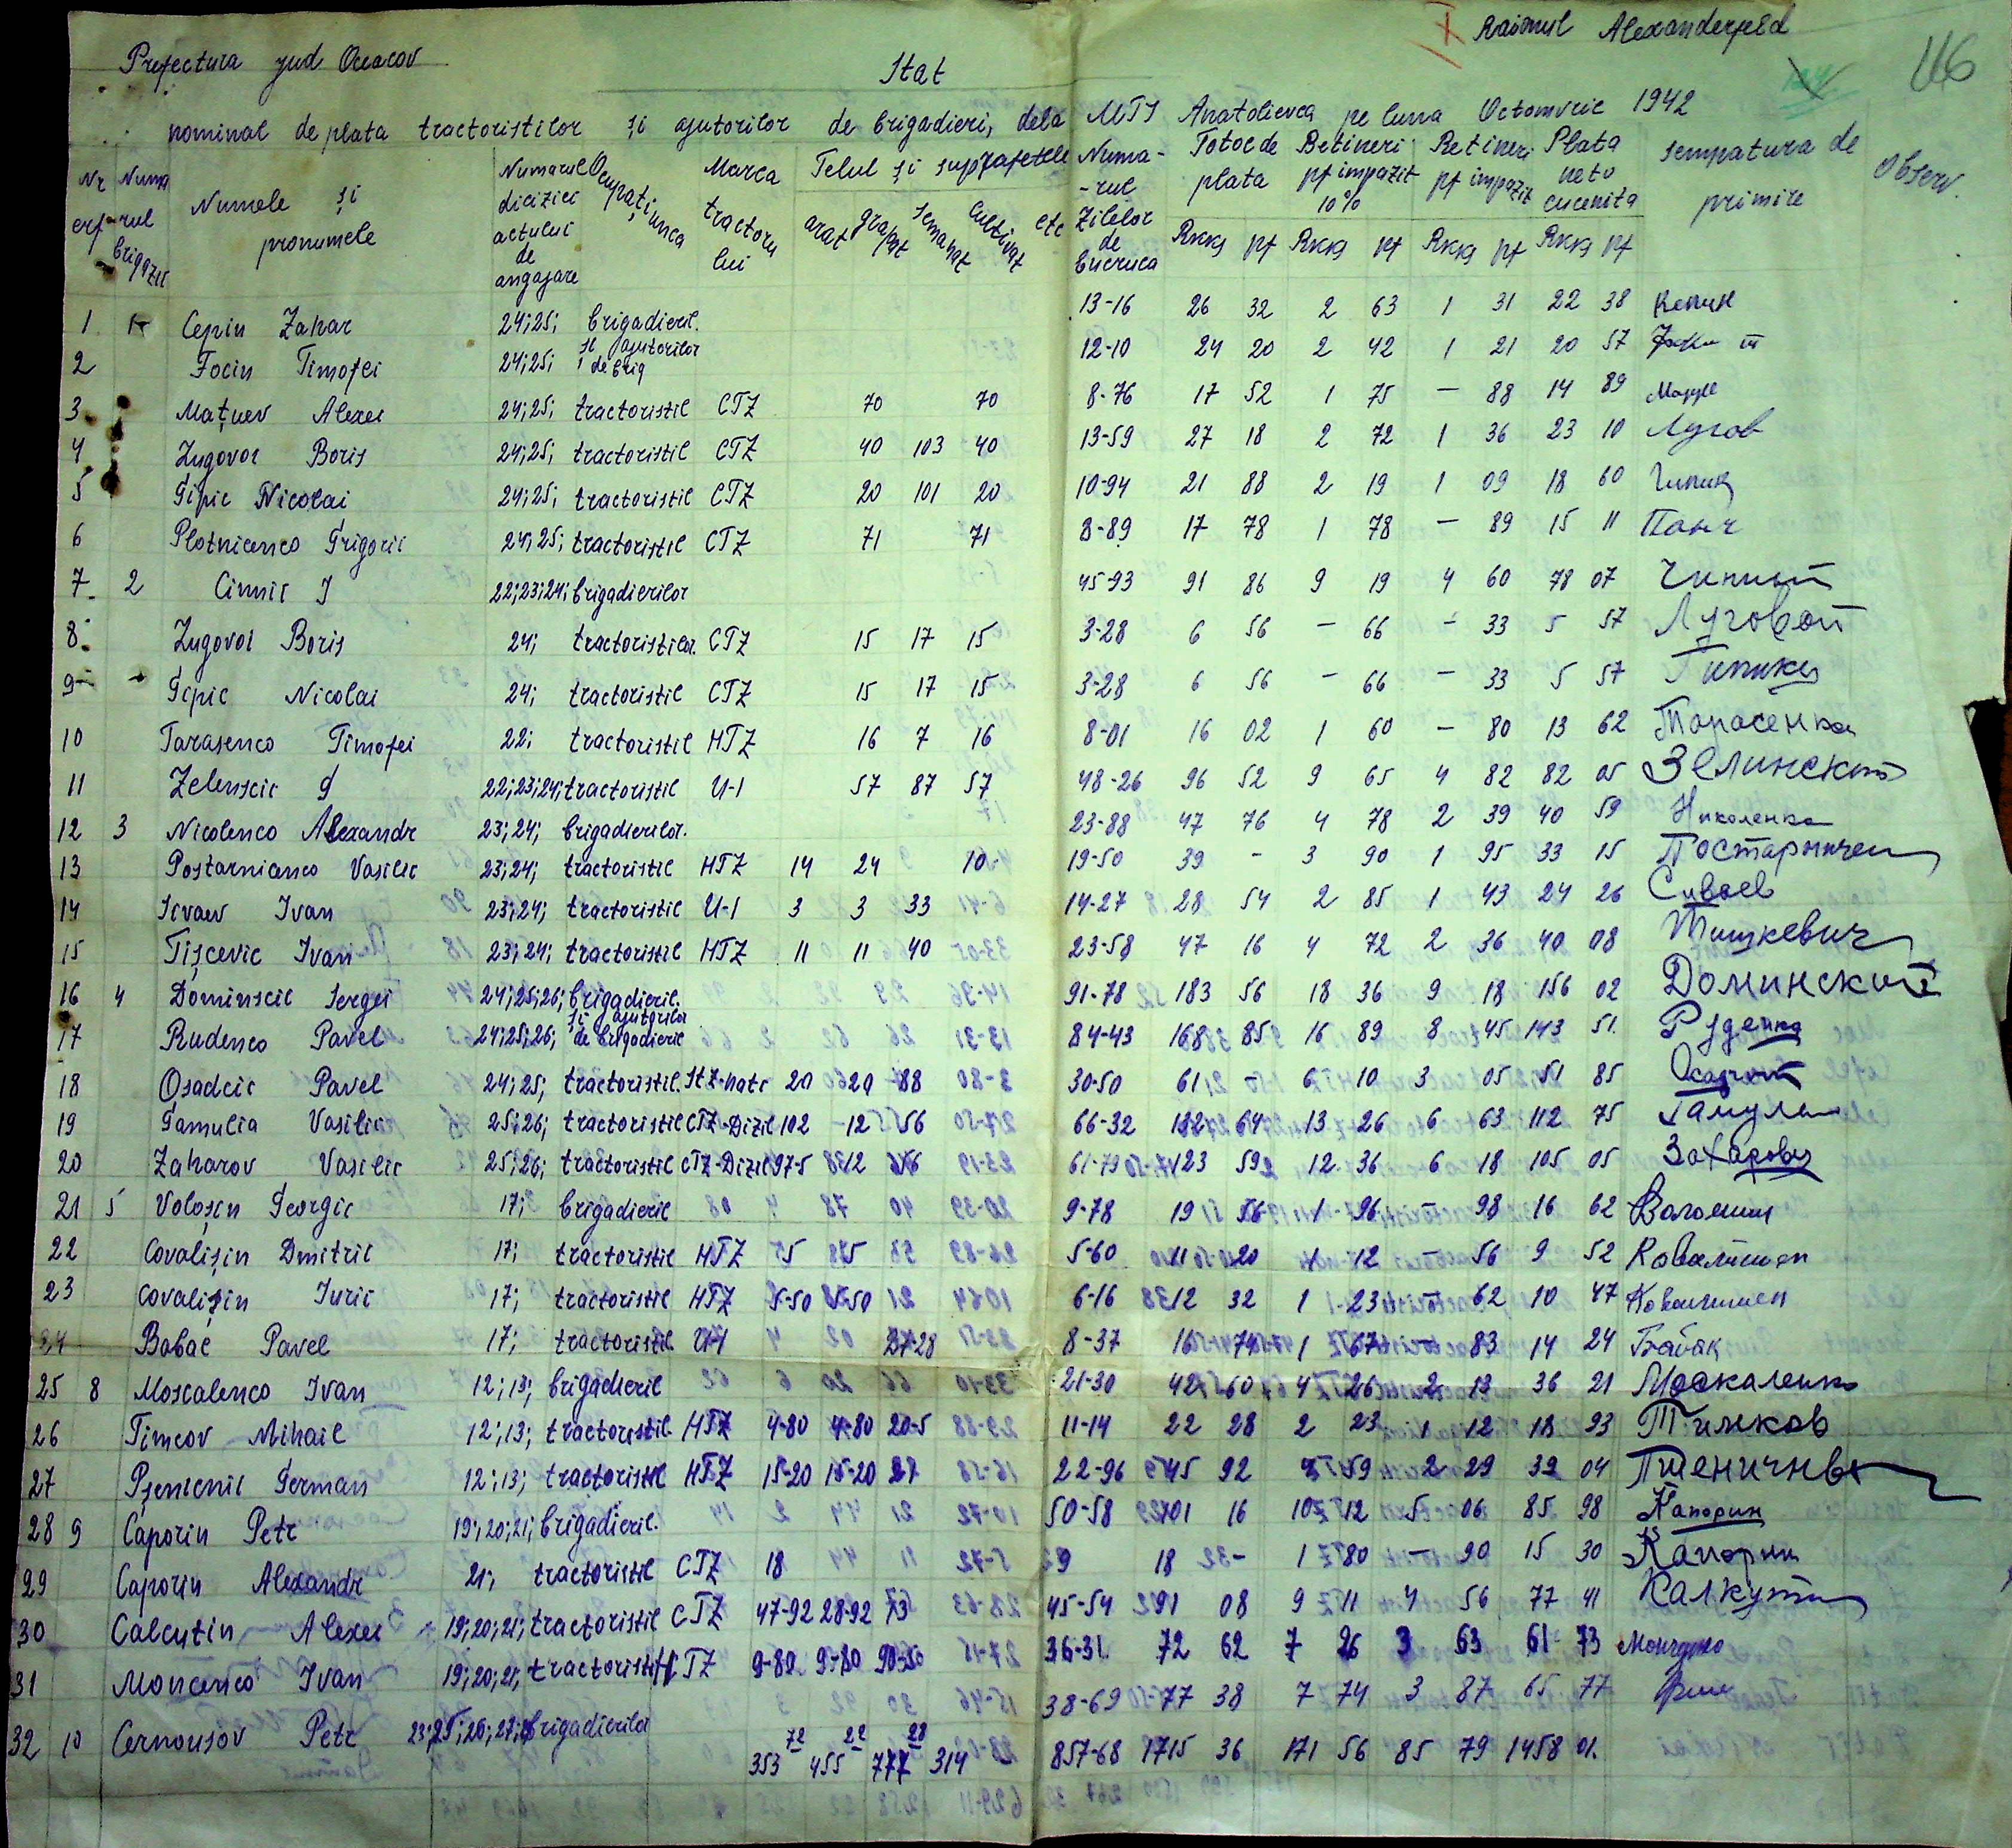 Raionul Alexanderfeld
116
Prefectura jud Oceacov
Stat
nominal de plata tractoristilor și ajutorilor de brigadieri, dela MTS Anatolievca pe luna Octomvrie 1942
Nr Numa rul brigazii Numele și pronumele Numarul dicizici actului de angajare Ocupațiunea Marca tractoru lui Felul și suprafetele arat grapat semanat cultivat etc Numa-rul Zilelor de lucruca Totoc de plata Rkkș pf Retineri pf impozit 10% Rkkș pf Retineri pf impozit Rkkș pf Plata neto cucenita Rkkș pf semnatura de primire Observ.
1 Cepin Zahar 24;25; brigadieril. 13-16 26 32 2 63 1 31 22 38 Кепин
2 Focin Timofei 24;25; și ajutorilor de brig 12-10 24 20 2 42 1 21 20 57
3 Mațuev Alexei 24;25; tractoristil CTZ 70 70 8-76 17 52 1 75 — 88 14 89
4 Lugovoi Boris 24;25; tractoristil CTZ 40 103 40 13-59 27 18 2 72 1 36 23 10 Лугов
5 Gipic Nicolai 24;25; tractoristil CTZ 20 101 20 10-94 21 88 2 19 1 09 18 60 Гипик
6 Plotnicenco Grigorii 24;25; tractoristil CTZ 71 71 8-89 17 78 1 78 — 89 15 11
7 2 Cinnic I 22;23;24; brigadierilor 45-93 91 86 9 19 4 60 78 07
8 Lugovoi Boris 24; tractoristilor. CTZ 15 17 15 3-28 6 56 — 66 — 33 5 57 Луговой
9 Gipic Nicolai 24; tractoristil CTZ 15 17 15 3-28 6 56 — 66 — 33 5 57 Гипик
10 Tarasenco Timofei 22; tractoristil HTZ 16 7 16 8-01 16 02 1 60 — 80 13 62 Тарасенко
11 Zelenscii G 22;23;24; tractoristil U-1 57 87 57 48-26 96 52 9 65 4 82 82 05 Зелинский
12 3 Nicolenco Alexandr 23;24; brigadierilor. 23-88 47 76 4 78 2 39 40 59 Николенко
13 Postarnicenco Vasilii 23;24; tractoristil HTZ 14 24 10 19-50 39 - 3 90 1 95 33 15
14 Sivaev Ivan 23;24; tractoristil U-1 3 3 33 14-27 28 54 2 85 1 43 24 26 Сиваев
15 Tișcevic Ivan 23;24; tractoristil HTZ 11 11 40 23-58 47 16 4 72 2 36 40 08 Тишкевич
16 4 Dominscii Sergei 24;25;26; brigadieril. 91-78 183 56 18 36 9 18 156 02 Доминский
17 Rudenco Pavel 24;25;26; și ajutorilor de brigadieril 84-43 168 85 16 89 8 45 143 51. Руденко
18 Osadcii Pavel 24;25; tractoristil. StZ-nati 20 20 88 30-50 61 - 6 10 3 05 51 85
19 Gamulia Vasilii 25;26; tractoristil CTZ-Dizil 102 -12 56 66-32 132 64 13 26 6 63 112 75 Гамуля
20 Zaharov Vasilii 25;26; tractoristil CTZ-Dizil 97-5 12 61-79 123 59 12 36 6 18 105 05 Захаров
21 5 Voloșin Georgii 17; brigadieril 9-78 19 56 1 96 — 98 16 62 Волошин
22 Covalișin Dmitrii 17; tractoristil HTZ 5 5 5-60 11 20 1 12 — 56 9 52 Ковалишен
23 Covalișin Iurii 17; tractoristil HTZ 5-50 5-50 6-16 12 32 1 23 — 62 10 47 Ковалишен
24 Babac Pavel 17; tractoristil U-1 28 8-37 16 74 1 67 — 83 14 24 Бабак
25 8 Moscalenco Ivan 12;13; brigadieril 21-30 42 60 4 26 2 13 36 21 Москаленко
26 Timcov Mihail 12;13; tractoristil HTZ 4-80 4-80 20-5 11-14 22 28 2 23 1 12 18 93 Тимков
27 Pșenicnii German 12;13; tractoristil HTZ 15-20 15-20 27 22-96 45 92 4 59 2 29 39 04 Пшеничный
28 9 Caporin Petr 19;20;21; brigadieril. 50-58 101 16 10 12 5 06 85 98 Капорин
29 Caporin Alexandr 21; tractoristil CTZ 18 9 18 - 1 80 — 90 15 30 Капорин
30 Calcutin Alexei 19;20;21; tractoristil CTZ 47-92 28-92 73 45-54 91 08 9 11 4 56 77 41 Калкутин
31 Moncenco Ivan 19;20;21; tractoristil HTZ 9-80 9-80 90-50 36-31 72 62 7 26 3 63 61 73
32 10 Cernousov Petr 23;25;26;27; brigadierilor 38-69 77 38 7 74 3 87 65 77
353 72 455 22 777 28 314 857-68 1715 36 171 56 85 79 1458 01.